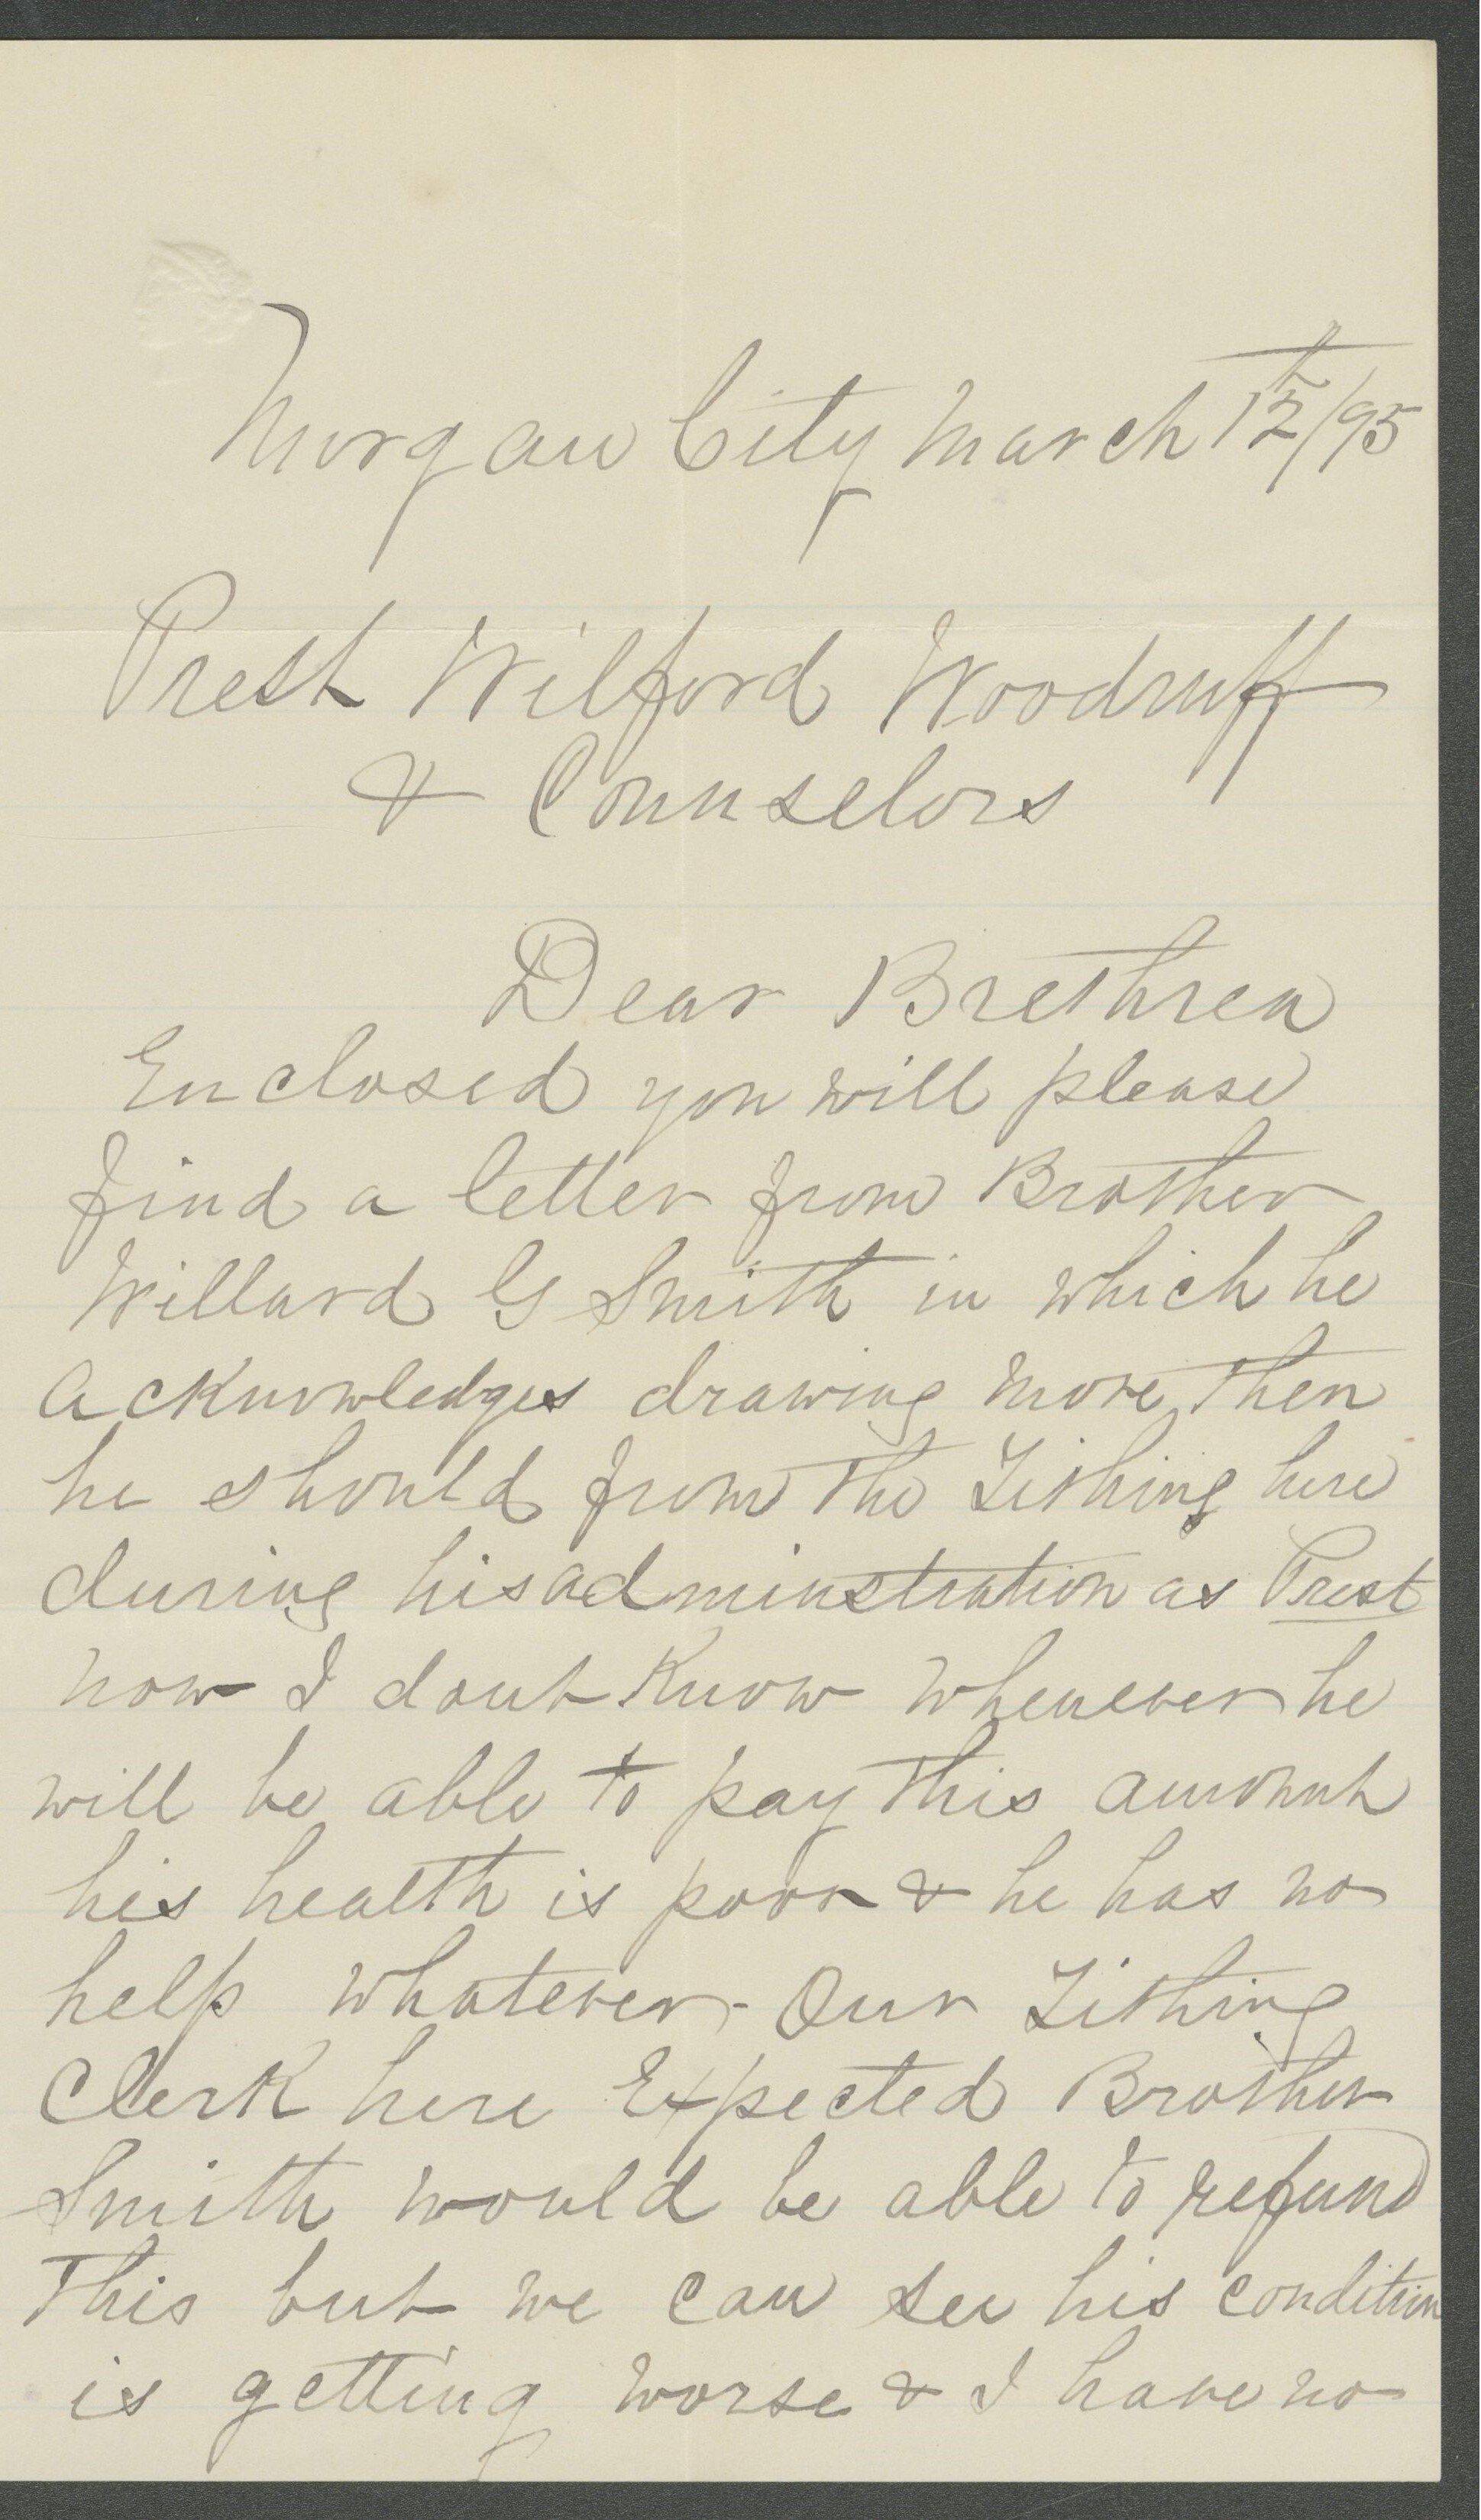 Morgan City March 12th/95
Prest Wilford Woodruff
& Counselors
Dear Brethren
Enclosed you will please
find a letter from Brother
Willard G Smith in which he
acknowledges drawing more then
he should from the Tithing here
during his adminstration as Prest
now I dont know whenever he
will be able to pay this amount
his health is poor & he has no
help whatever - Our Tithing
Clerk here Expected Brother
Smith would be able to refund
This but we can see his condition
is getting worse & I have no